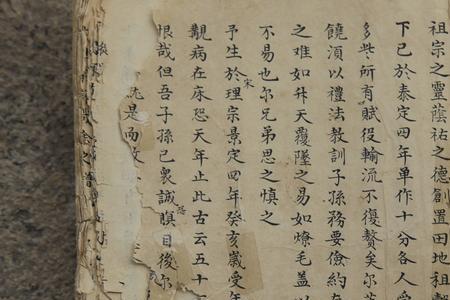 祖宗之靈蔭祐之德創置田地租
下已於泰定四年單作十分各人
多些所有賦役輪流不復贅矣尔
饒湏以禮法教訓子孫務要儉約
之难如升天覆墜之易如燎毛盖以
不易也尔兄弟思之慎之
予生於宋理宗景定四年癸亥歲受
觀病在床恐天年止此古云五十
恨哉但吾子孫已衆誠恐瞑目後尔
是而